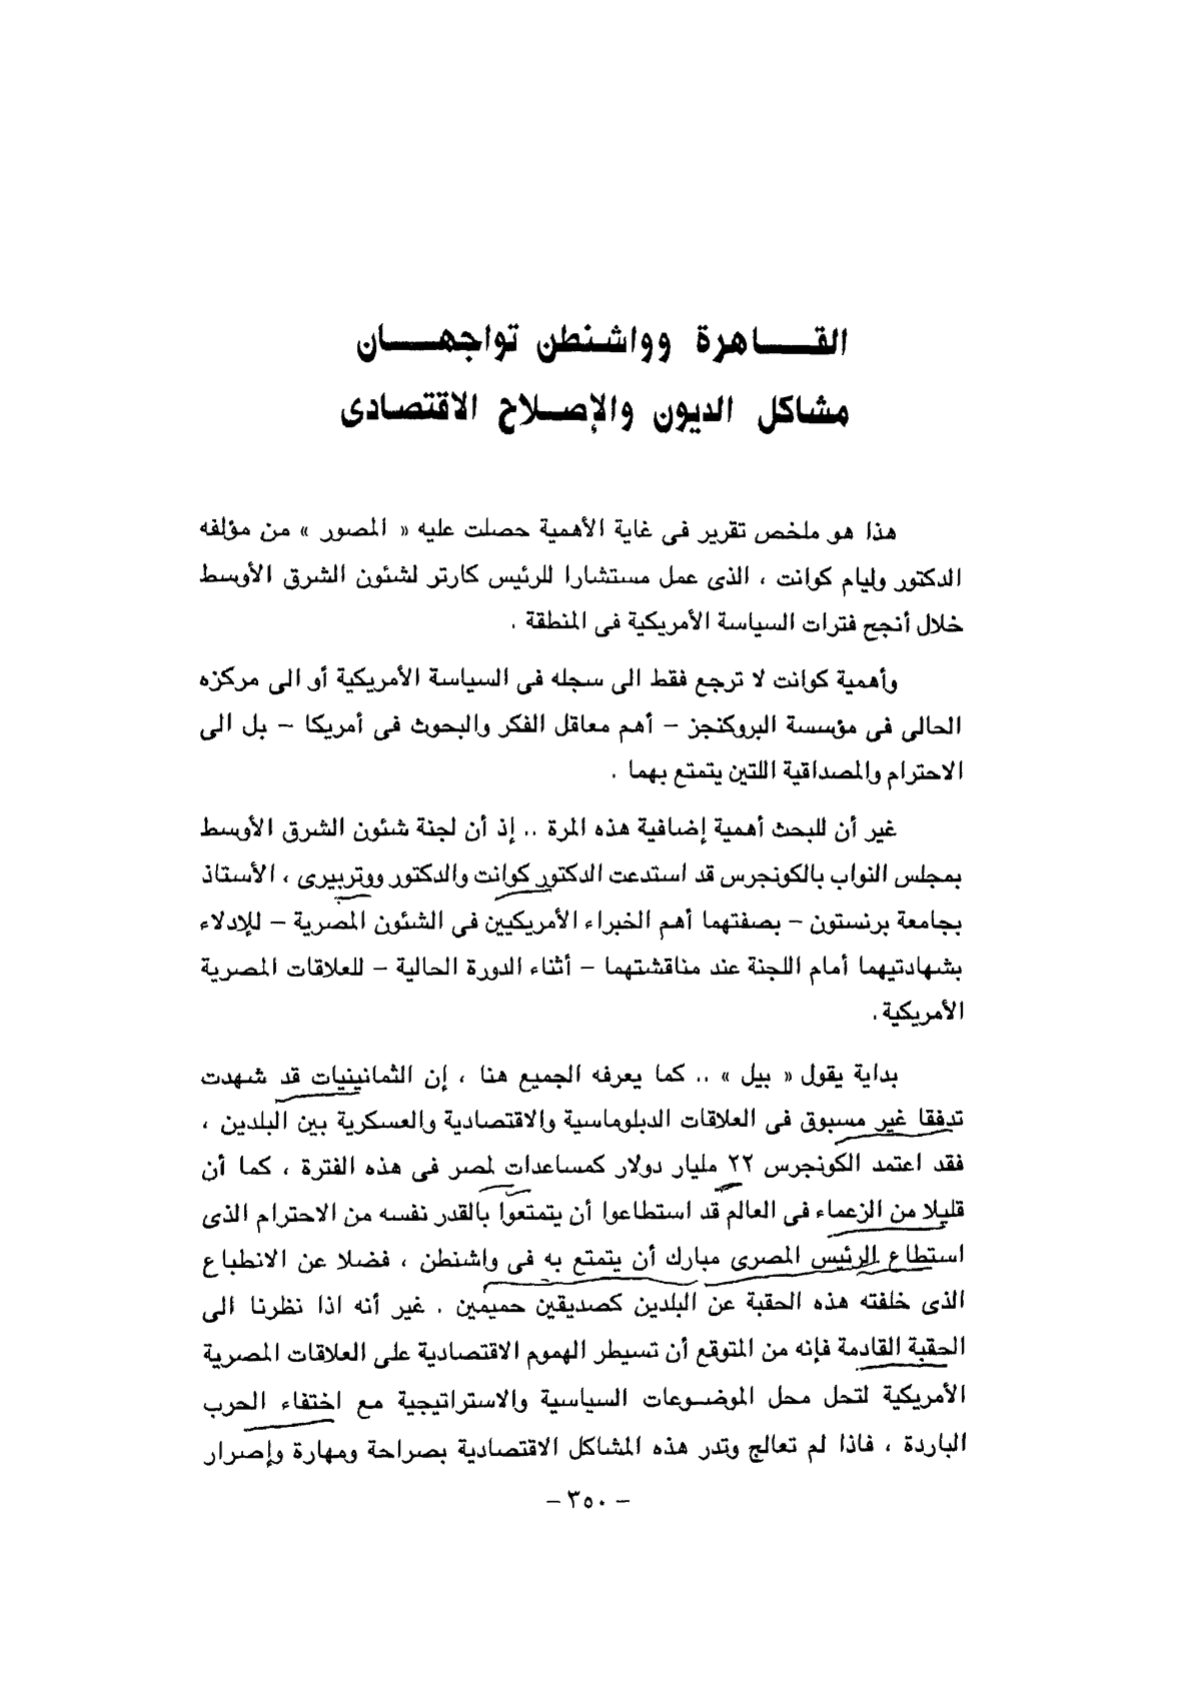 القاهرة وواشنطن تواجهان
مشاكل الديون والإصلاح الاقتصادى
هذا هو ملخص تقرير فى غاية الأهمية حصلت عليه « المصور » من مؤلفه
الدكتور وليام كوانت ، الذى عمل مستشارا للرئيس كارتر لشئون الشرق الأوسط
خلال أنجح فترات السياسة الأمريكية فى المنطقة .
وأهمية كوانت لا ترجع فقط الى سجله فى السياسة الأمريكية أو الى مركزه
الحالى فى مؤسسة البروكنجز – أهم معاقل الفكر والبحوث فى أمريكا – بل الى
الاحترام والمصداقية اللتين يتمتع بهما .
غير أن للبحث أهمية إضافية هذه المرة .. إذ أن لجنة شئون الشرق الأوسط
بمجلس النواب بالكونجرس قد استدعت الدكتور كوانت والدكتور ووتربيرى ، الأستاذ
بجامعة برنستون – بصفتهما أهم الخبراء الأمريكيين فى الشئون المصرية – للإدلاء
بشهادتيهما أمام اللجنة عند مناقشتهما – أثناء الدورة الحالية – للعلاقات المصرية
الأمريكية .
بداية يقول « بيل » .. كما يعرفه الجميع هنا ، إن الثمانينيات قد شهدت
تدفقا غير مسبوق فى العلاقات الدبلوماسية والاقتصادية والعسكرية بين البلدين ،
فقد اعتمد الكونجرس ٢٢ مليار دولار كمساعدات لمصر فى هذه الفترة ، كما أن
قليلا من الزعماء فى العالم قد استطاعوا أن يتمتعوا بالقدر نفسه من الاحترام الذى
استطاع الرئيس المصرى مبارك أن يتمتع به فى واشنطن ، فضلا عن الانطباع
الذى خلفته هذه الحقبة عن البلدين كصديقين حميمين . غير أنه اذا نظرنا الى
الحقبة القادمة فإنه من المتوقع أن تسيطر الهموم الاقتصادية على العلاقات المصرية
الأمريكية لتحل محل الموضوعات السياسية والاستراتيجية مع اختفاء الحرب
الباردة ، فاذا لم تعالج وتدر هذه المشاكل الاقتصادية بصراحة ومهارة وإصرار
– ٣٥٠ –